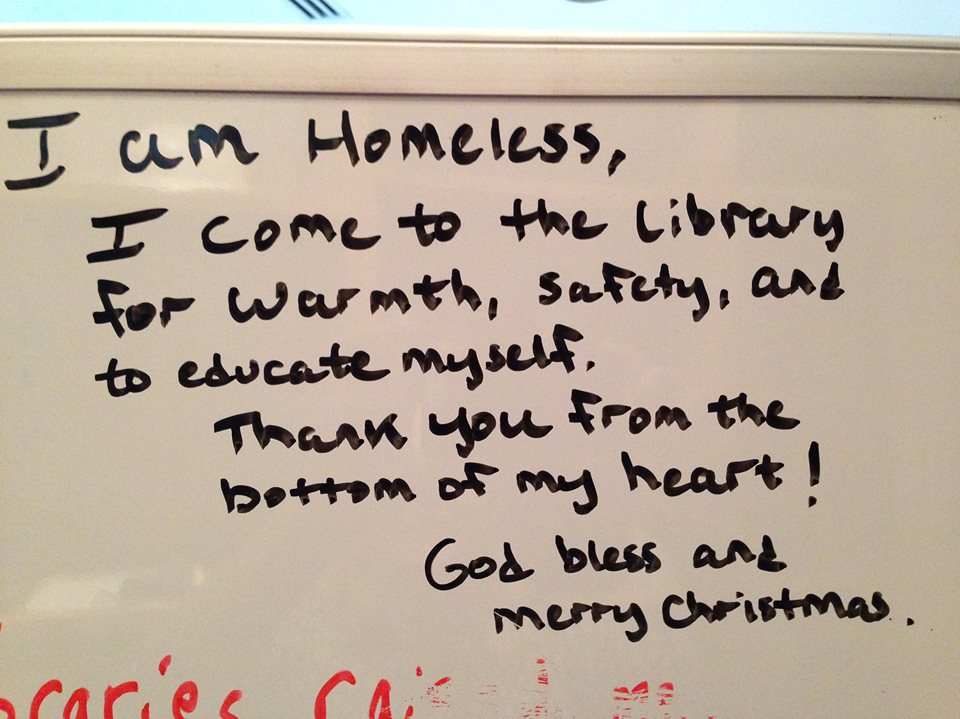 I am Homeless,
I come to the Library
for warmth, safety, and
to educate myself.
Thank you from the
bottom of my heart!
God bless and
merry Christmas.